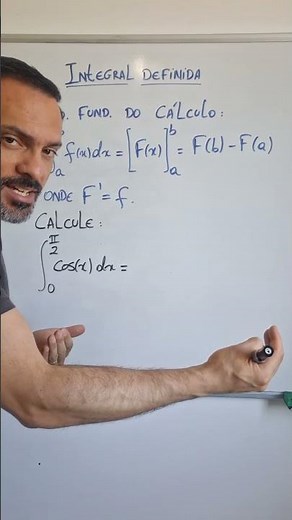 INTEGRAL DEFINIDA
. FUND. DO CÁLCULO:
∫ₐ f(x)dx = [F(x)]ₐᵇ = F(b) - F(a)
ONDE F' = f.
CALCULE:
∫₀^(π/2) cos(x) dx =